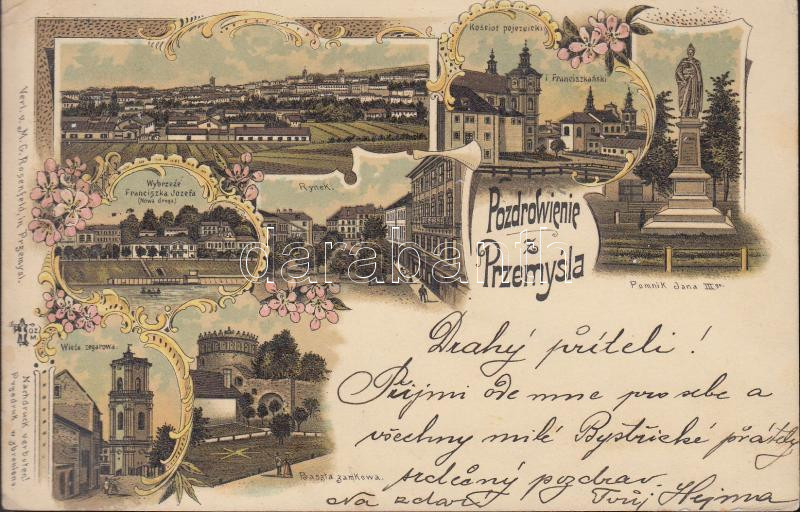 Kościoł pojezuicki
i Franciszkański
Wybrzeże
Franciszka Józefa
(Nowa droga)
Rynek.
Pozdrowięnie
z
Przemyśla
Pomnik Jana III go.
Wieża zegarowa.
Baszta zamkowa.
Verl. v. M. G. Rosenfeld, in Przemysl.
Nachdruck verboten!
Przedruk wzbroniono
darabanth
Drahý příteli!
Přijmi ode mne pro sebe a
všechny milé Bystřické přátely
srdečný pozdrav.
Na zdar! Tvůj Hejma